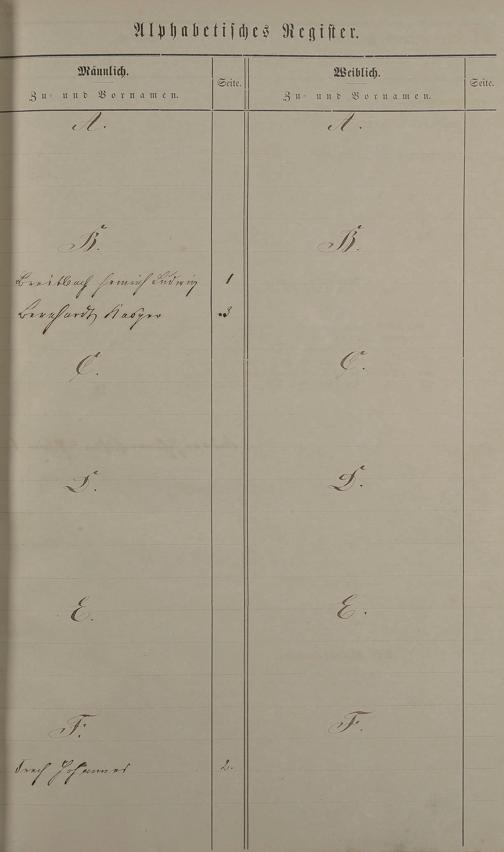 Alphabetisches Register.
Männlich.
Zu- und Vornamen.
Seite.
Weiblich.
Zu- und Vornamen.
Seite.
A.
A.
B.
B.
Breitbach Heinrich Ludwig 1
Bernhardt, Kasper 3
C.
C.
D.
D.
E.
E.
F.
F.
Johannes 2.